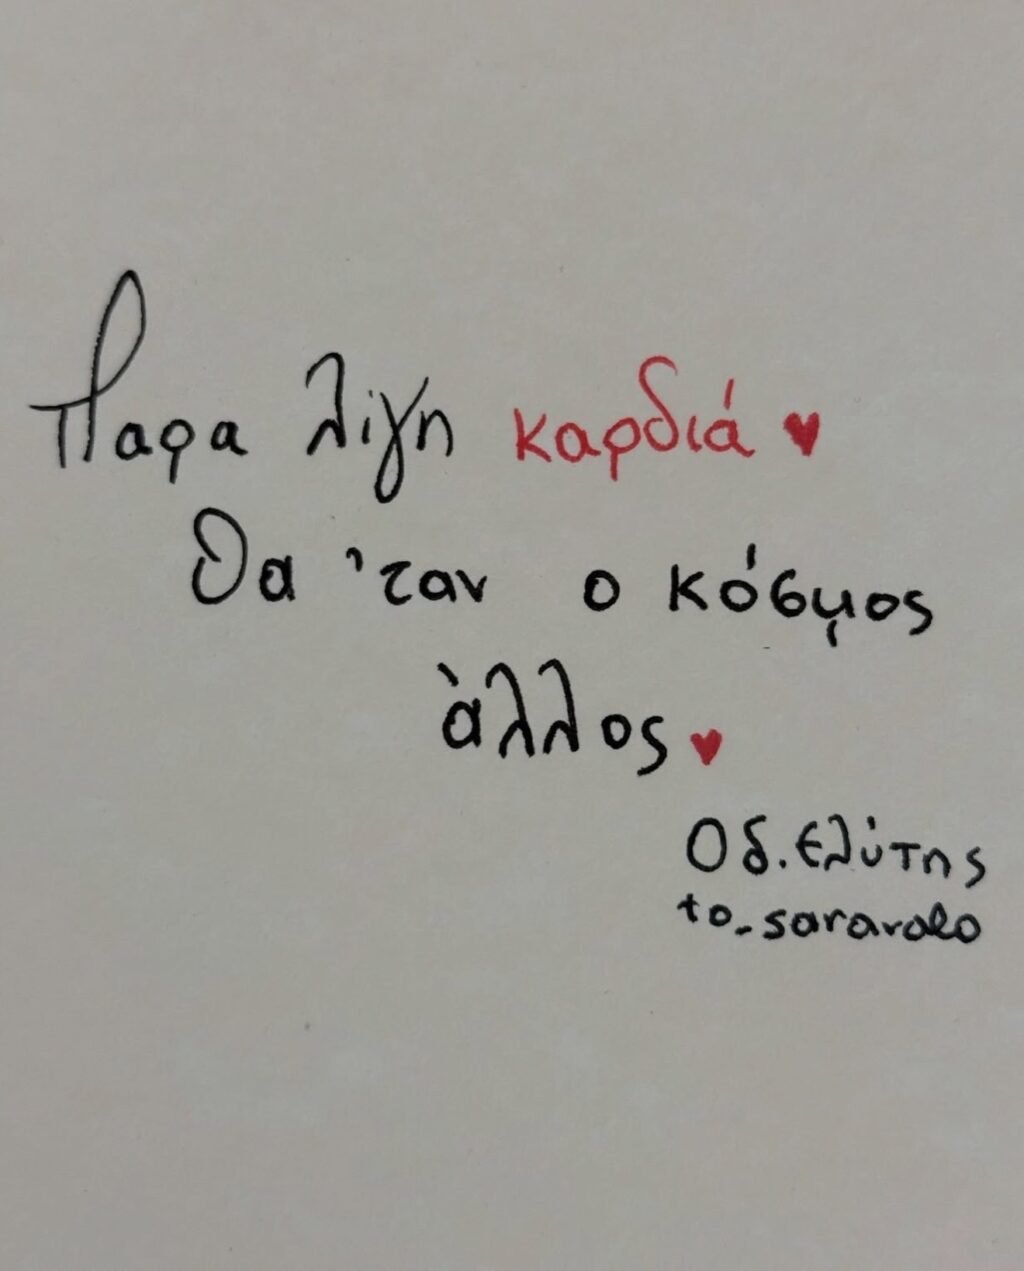 Παρα λίγη καρδιά ♥
Θα 'ταν ο κόσμος
άλλος ♥
Οδ. Ελύτης
to_saravalo